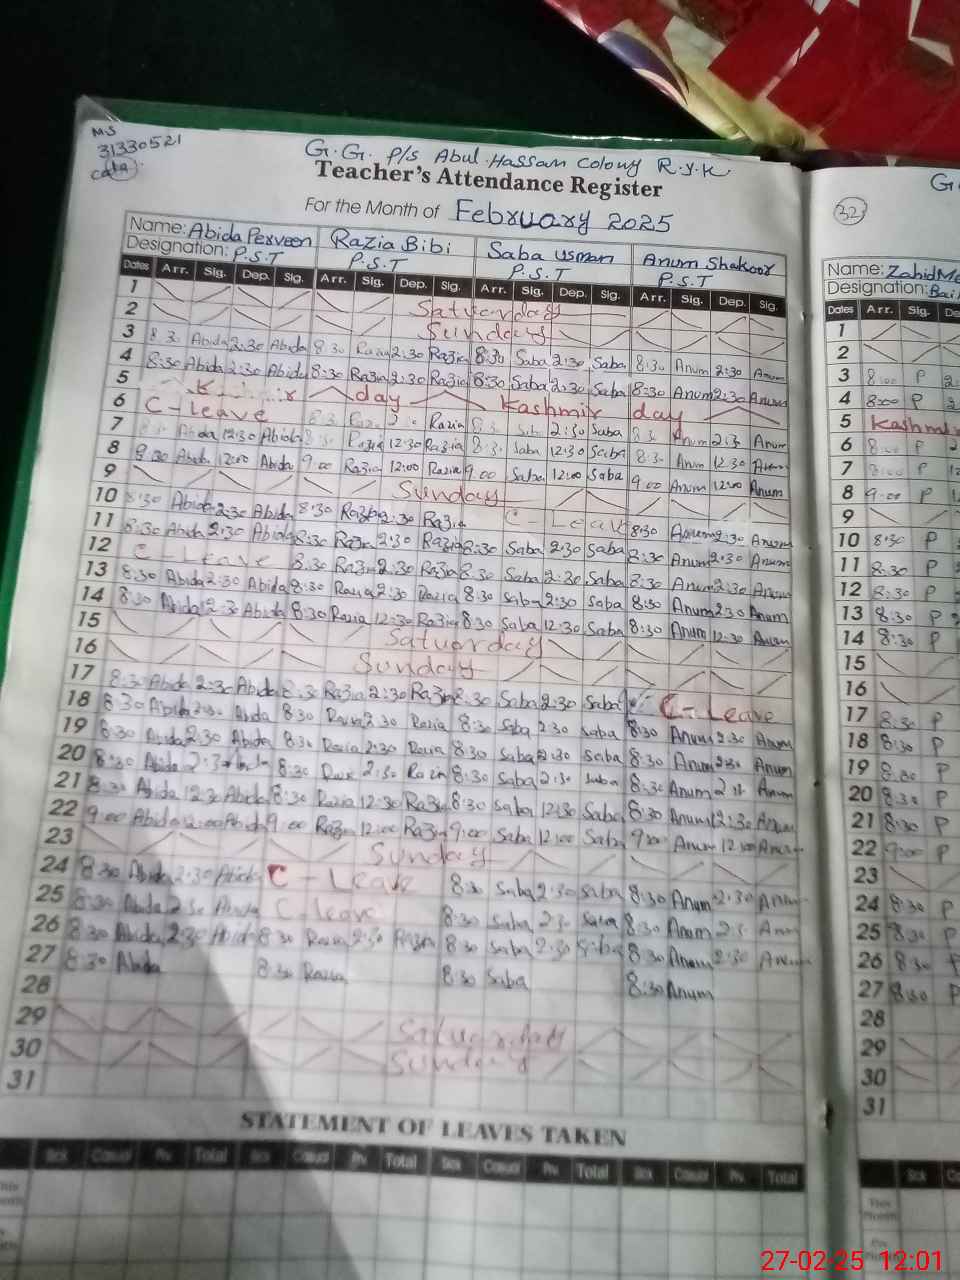 M.S
31330521
G.G. P/S Abul Hassan Colony R.Y.K
Teacher's Attendance Register
For the Month of February 2025
32
Name: Abida Perveen Razia Bibi Saba Usman Anum Shakoor
Designation: P.S.T P.S.T P.S.T P.S.T
Dates Arr. Sig. Dep. Sig. Arr. Sig. Dep. Sig. Arr. Sig. Dep. Sig. Arr. Sig. Dep. Sig.
1 Saturday
2 Sunday
3 8:30 Abida 2:30 Abida 8:30 Razia 2:30 Razia 8:30 Saba 2:30 Saba 8:30 Anum 2:30 Anum
4 8:30 Abida 2:30 Abida 8:30 Razia 2:30 Razia 8:30 Saba 2:30 Saba 8:30 Anum 2:30 Anum
5 Kashmir day Kashmir day
6 C-leave 8:30 Razia 2:30 Razia 8:30 Saba 2:30 Saba 8:30 Anum 2:30 Anum
7 8:30 Abida 12:30 Abida 8:30 Razia 12:30 Razia 8:30 Saba 12:30 Saba 8:30 Anum 12:30 Anum
8 9:00 Abida 12:00 Abida 9:00 Razia 12:00 Razia 9:00 Saba 12:00 Saba 9:00 Anum 12:00 Anum
9 Sunday
10 8:30 Abida 2:30 Abida 8:30 Razia 2:30 Razia C-Leave 8:30 Anum 2:30 Anum
11 8:30 Abida 2:30 Abida 8:30 Razia 2:30 Razia 8:30 Saba 2:30 Saba 8:30 Anum 2:30 Anum
12 C-Leave 8:30 Razia 2:30 Razia 8:30 Saba 2:30 Saba 8:30 Anum 2:30 Anum
13 8:30 Abida 2:30 Abida 8:30 Razia 2:30 Razia 8:30 Saba 2:30 Saba 8:30 Anum 2:30 Anum
14 8:30 Abida 12:30 Abida 8:30 Razia 12:30 Razia 8:30 Saba 12:30 Saba 8:30 Anum 12:30 Anum
15 Saturday
16 Sunday
17 8:30 Abida 2:30 Abida 8:30 Razia 2:30 Razia 8:30 Saba 2:30 Saba C-Leave
18 8:30 Abida 2:30 Abida 8:30 Razia 2:30 Razia 8:30 Saba 2:30 Saba 8:30 Anum 2:30 Anum
19 8:30 Abida 2:30 Abida 8:30 Razia 2:30 Razia 8:30 Saba 2:30 Saba 8:30 Anum 2:30 Anum
20 8:30 Abida 2:30 Abida 8:30 Razia 2:30 Razia 8:30 Saba 2:30 Saba 8:30 Anum 2:30 Anum
21 8:30 Abida 12:30 Abida 8:30 Razia 12:30 Razia 8:30 Saba 12:30 Saba 8:30 Anum 12:30 Anum
22 9:00 Abida 12:00 Abida 9:00 Razia 12:00 Razia 9:00 Saba 12:00 Saba 9:00 Anum 12:00 Anum
23 Sunday
24 8:30 Abida 2:30 Abida C-Leave 8:30 Saba 2:30 Saba 8:30 Anum 2:30 Anum
25 8:30 Abida 2:30 Abida C-leave 8:30 Saba 2:30 Saba 8:30 Anum 2:30 Anum
26 8:30 Abida 2:30 Abida 8:30 Razia 2:30 Razia 8:30 Saba 2:30 Saba 8:30 Anum 2:30 Anum
27 8:30 Abida 8:30 Razia 8:30 Saba 8:30 Anum
28
29 Saturday
30 Sunday
31
STATEMENT OF LEAVES TAKEN
Sick Casual Prv. Total Sick Casual Prv. Total Sick Casual Prv. Total Sick Casual Prv. Total
Name: Zahid
Designation:
Dates Arr. Sig.
1
2
3 8:00 P
4 8:00 P
5 Kashmir
6 8:00 P
7 8:00 P
8 9:00 P
9
10 8:30 P
11 8:30 P
12 8:30 P
13 8:30 P
14 8:30 P
15
16
17 8:30 P
18 8:30 P
19 8:30 P
20 8:30 P
21 8:30 P
22 9:00 P
23
24 8:30 P
25 8:30 P
26 8:30 P
27 8:30 P
28
29
30
31
Sick
This Month
27-02-25 12:01